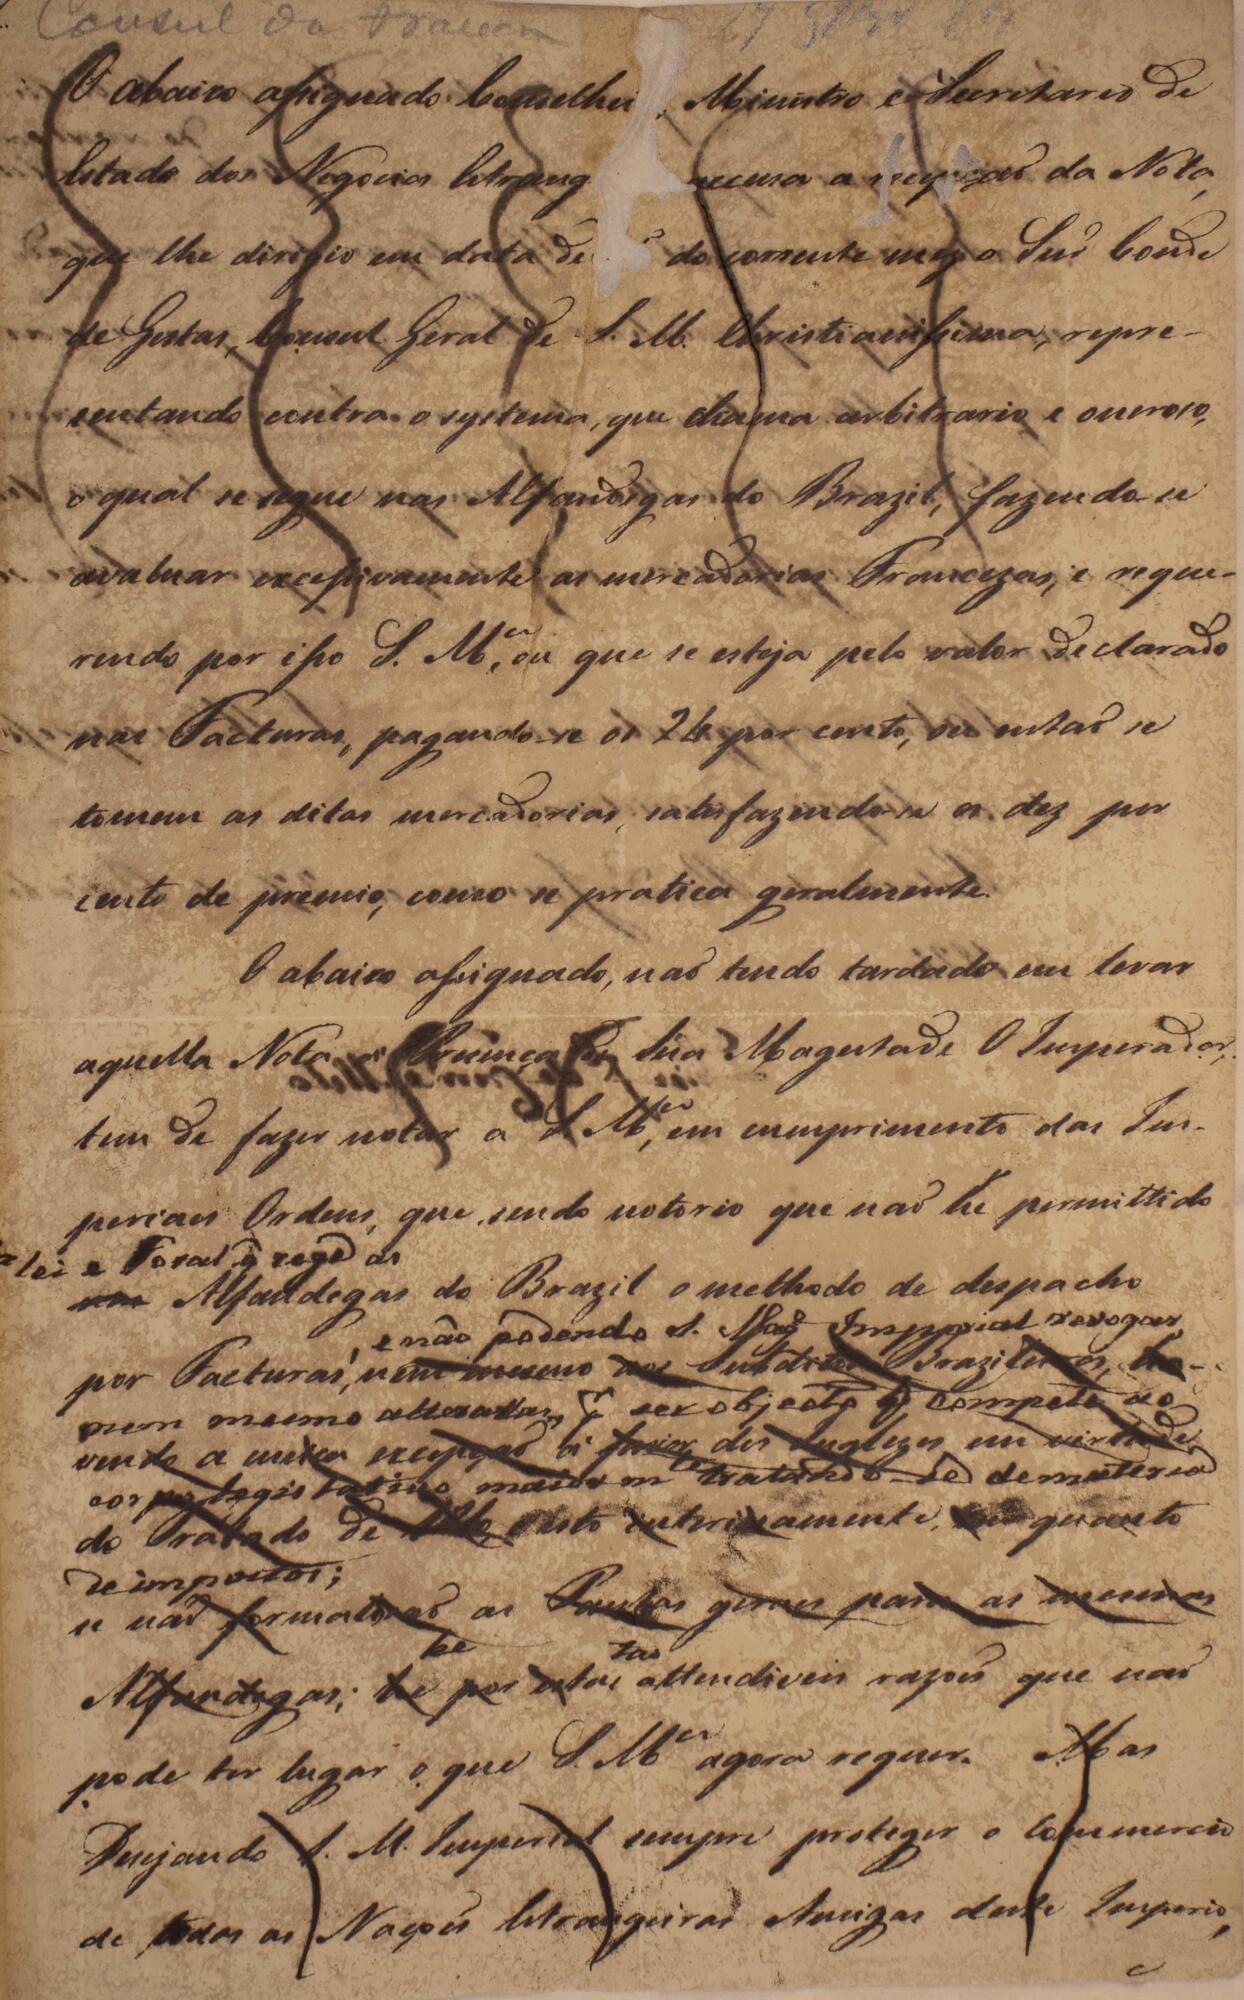 Consul da França
O abaixo assignado Conselhei Ministro e Secretario de
Estado dos Negocios Estrang accusa a recepçaõ da Nota,
que lhe dirigio em data de do corrente mez o Snr̃ Conde
de Gestas, Consul Geral de S. M. Christianissima, repre-
sentando contra o systema, que chama arbitrario e oneroso,
o qual se segue nas Alfandegas do Brazil, fazendo-se
avaluar excessivamente as mercadorias Francezas, e reque-
rendo por isso S. M.ce, ou que se esteja pelo valor declarado
nas Facturas, pagando-se os 24 por cento, ou entaõ se
tomem as ditas mercadorias, satisfazendo-se os dez por
cento de premio, como se pratica geralmente.
O abaixo assignado, naõ tendo tardado em levar
aquella Nota á Prezença de Sua Magestade O Imperador,
tem de fazer notar a S. M.ce, em cumprimento das Im-
periaes Ordens, que, sendo notorio que naõ he permittido
lei e Foral q̃ rege as
nas Alfandegas do Brazil o methodo de despacho
, e não podendo S. Mag.e Imperial revogar,
por Facturas, nem mesmo aos Subditos Brazileiros, ha-
nem mesmo alterallas, p.r ser objecto q̃ compete ao
vendo a unica excepçaõ a favor dos Inglezes em virtude
corpo legislativo maiorm.te tratando-se de materia
do Tratado de e isto interinamente, em quanto
de impostos;
se naõ formalisaõ as Pautas geraes para as mesmas
he tao
Alfandegas; he por estas attendiveis razoẽs que naõ
pode ter lugar o que S. M.ce agora requer. Mas
Desejando S. M. Imperial sempre proteger o Commercio
de todas as Naçoẽs Estrangeiras Amigas deste Imperio,